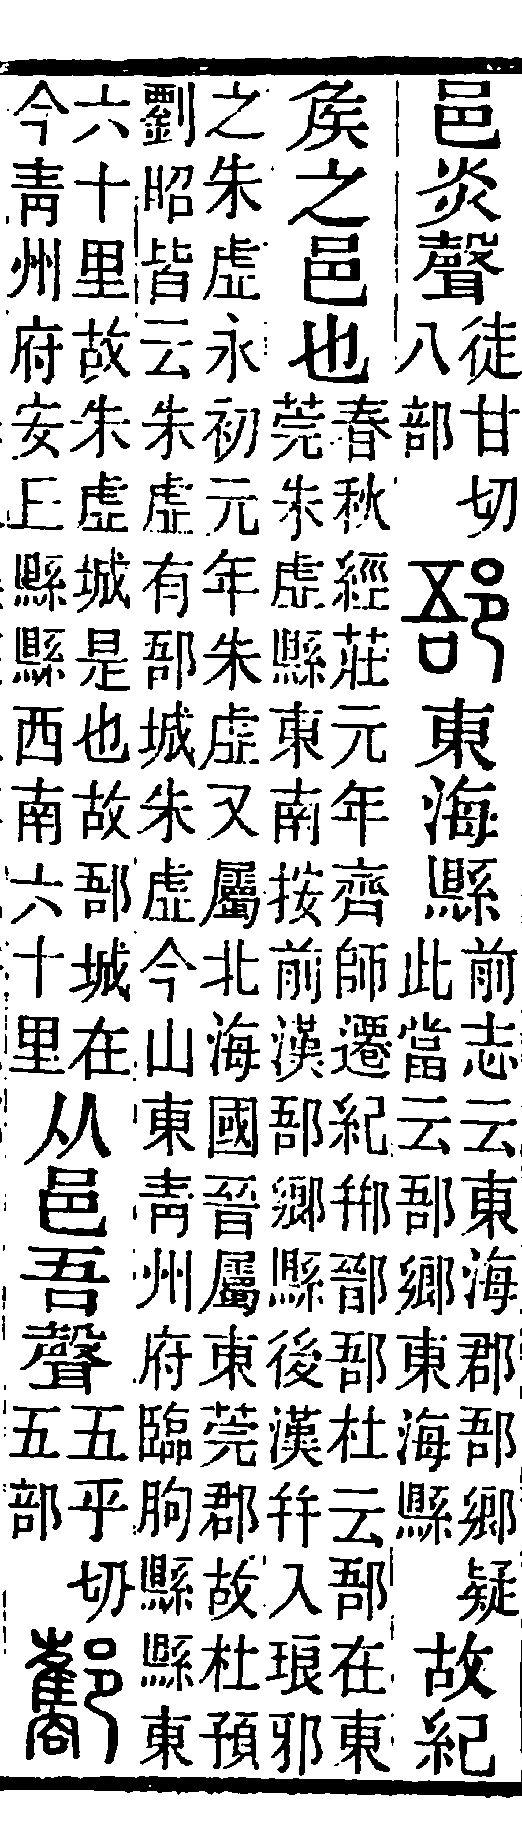 邑炎聲
徒甘切
八部
郚
東海縣
前志云東海郡郚鄉疑
此當云郚鄉東海縣
故紀
矦之邑也
春秋經莊元年齊師遷紀郱鄑郚杜云郚在東
莞朱虛縣東南按前漢郚鄉縣後漢幷入琅邪
之朱虛永初元年朱虛又屬北海國晉屬東莞郡故杜預
劉昭皆云朱虛有郚城朱虛今山東靑州府臨朐縣縣東
六十里故朱虛城是也故郚城在
今靑州府安丘縣縣西南六十里
从邑吾聲
五乎切
五部
酅